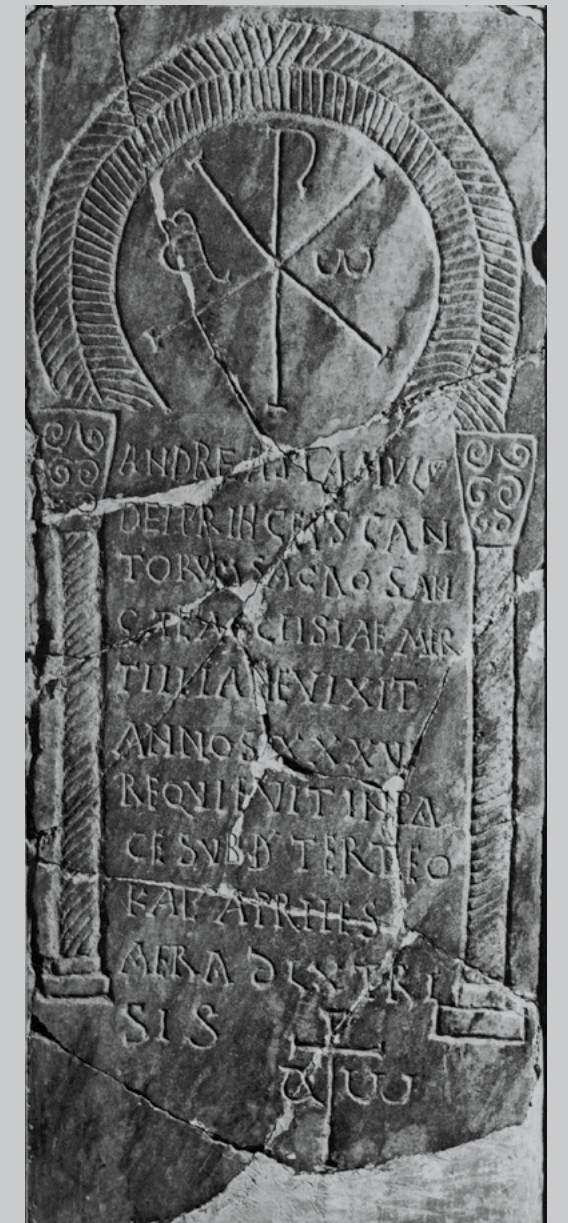 ☧
Α ω
ANDREAS FAMVLVS
DEI PRINCEPS CAN
TORVM SACROSAN
CTE AECLISIAE MER
TILLIANE VIXIT
ANNOS XXXVI
REQVIEVIT IN PA
CE SVB D TERTEO
KAL APRILES
AERA DLX TRI
SIS
Α ω